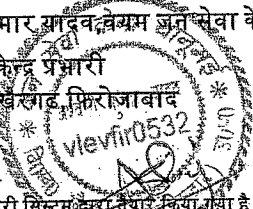 मार यादव,वेयम जन सेवा के
केन्द्र प्रभारी
खैरगढ़,फ़िरोजाबाद
vlevfir0532
री सिस्टम द्वारा तैयार किया गया है